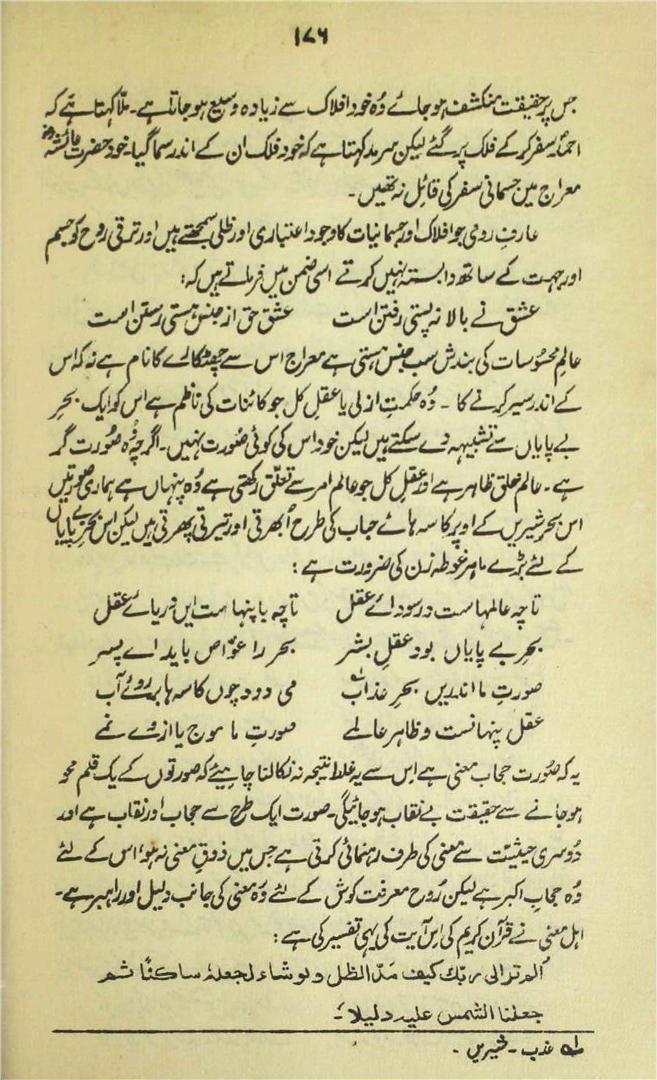 ۱۷۶
جس پر حقیقت منکشف ہو جائے وُہ خود افلاک سے زیادہ وسیع ہو جاتا ہے۔ ملّا کہتا ہے کہ
احمدؐ سفر کر کے فلک پر گئے لیکن سرمد کہتا ہے کہ خود فلک ان کے اندر سما گیا۔ خود حضرت عائشہؓ
معراج میں جسمانی سفر کی قائل نہ تھیں۔
عارفِ رومی جو افلاک اور جسمانیات کا وجود اعتباری اور ظلی سمجھتے ہیں اور ترقی روح کو جسم
اور جہت کے ساتھ وابستہ نہیں کرتے اسی ضمن میں فرماتے ہیں کہ:
عشق نے بالا نہ پستی رفتن است عشق حق از جنس ہستی رستن است
عالمِ محسُوسات کی بندش سب جنس ہستی ہے معراج اس سے چھٹکارے کا نام ہے نہ کہ اس
کے اندر سیر کرنے کا ۔ وُہ حکمتِ ازلی یا عقلِ کل جو کائنات کی ناظم ہے اس کو ایک بحرِ
بے پایاں سے تشبیہہ دے سکتے ہیں لیکن خود اس کی کوئی صُورت نہیں۔ اگرچہ وُہ صُورت گر
ہے۔ عالمِ خلق ظاہر ہے اور عقلِ کل جو عالمِ امر سے تعلّق رکھتی ہے وُہ پنہاں ہے ہماری صورتیں
اس بحرِ شیریں کے اوپر کاسہ ہائے حباب کی طرح اُبھرتی اور تیرتی پھرتی ہیں لیکن اس بحرِ بے پایاں
کے لئے بڑے ماہر غوطہ زن کی ضرورت ہے :
تا چہ عالمہاست در سودائے عقل تا چہ باپنہاست ایں دریائے عقل
بحرِ بے پایاں بود عقلِ بشر بحر را غوّاص باید اے پسر
صورتِ ما اندریں بحرِ عذابؔ می دود چوں کاسہ ہا بر روئے آب
عقل پنہانست و ظاہر عالمے صورتِ ما موج یا از وے نمے
یہ کہ صُورت حجابِ معنی ہے اس سے یہ غلط نتیجہ نہ نکالنا چاہیئے کہ صورتوں کے یک قلم محو
ہو جانے سے حقیقت بے نقاب ہو جائیگی۔ صورت ایک طرح سے حجاب اور نقاب ہے اور
دُوسری حیثیت سے معنی کی طرف رہنمائی کرتی ہے جس میں ذوقِ معنی نہ ہو اس کے لئے
وُہ حجابِ اکبر ہے لیکن رُوح معرفت کوش کے لئے وُہ معنی کی جانب دلیل اور راہبر ہے۔
اہلِ معنی نے قرآن کریم کی اس آیت کی یہی تفسیر کی ہے :
ألم تر الی ربّك كيف مَدّ الظل و لو شاء لجعلهٗ ساكنًا ثم
جعلنا الشمس عليه دليلا۔
لہ عذب ۔ شیریں ۔